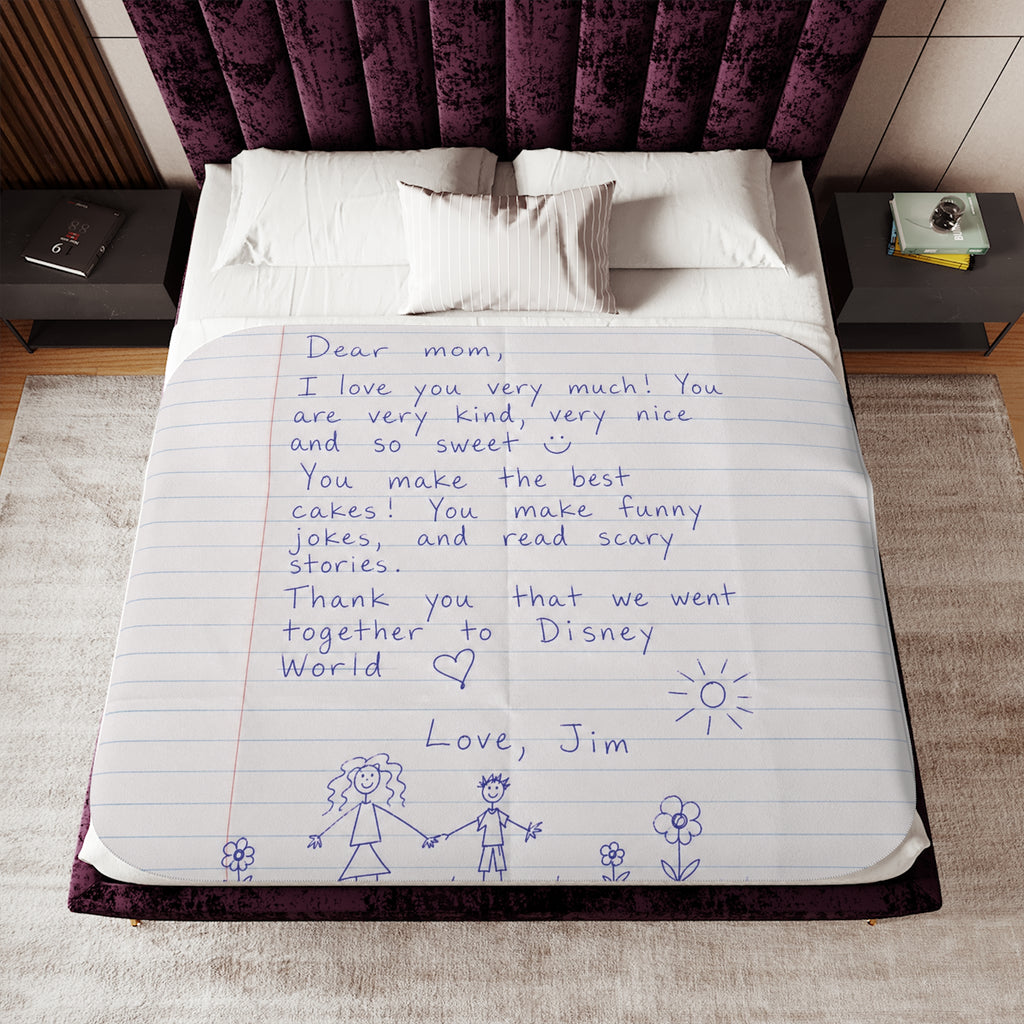 Dear mom,
I love you very much! You
are very kind, very nice
and so sweet
You make the best
cakes! You make funny
jokes, and read scary
stories.
Thank you that we went
together to Disney
World
Love, Jim